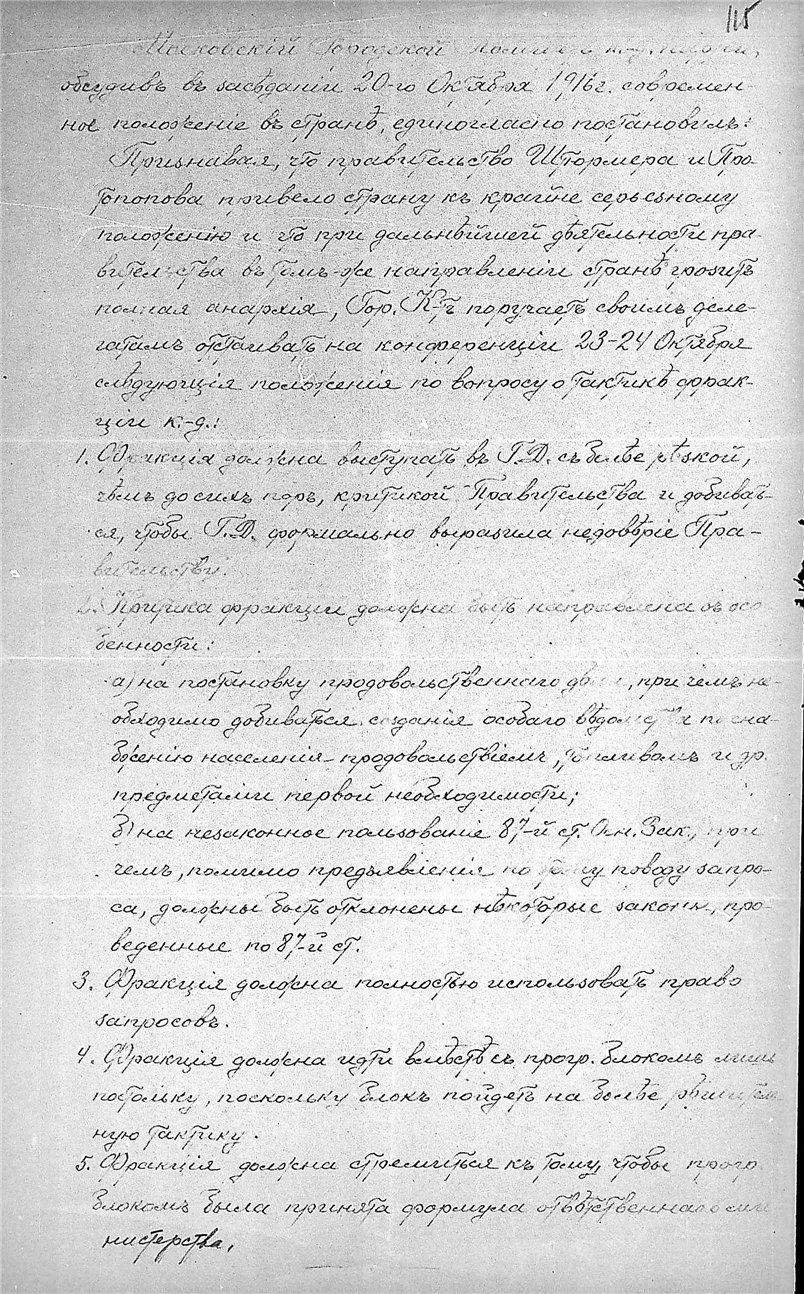 115
Московскій Городской Комитетъ к.-д. партіи,
обсудивъ въ засѣданіи 20-го Октября 1916 г. современ-
ное положеніе въ странѣ, единогласно постановилъ:
Признавая, что правительство Штюрмера и Про-
топопова привело страну къ крайне серьезному
положенію и что при дальнѣйшей дѣятельности пра-
вительства въ томъ-же направленіи странѣ грозитъ
полная анархія, Гор. К-тъ поручаетъ своимъ деле-
гатамъ отстаивать на конференціи 23-24 Октября
слѣдующія положенія по вопросу о тактикѣ фрак-
ціи к.-д.:
1. Фракція должна выступать въ Г.Д. съ болѣе рѣзкой,
чѣмъ до сихъ поръ, критикой Правительства и добивать-
ся, чтобы Г.Д. формально выразила недовѣріе Пра-
вительству.
2. Критика фракціи должна быть направлена въ осо
бенности:
а) на постановку продовольственнаго дѣла, при чемъ не-
обходимо добиваться созданія особаго вѣдомства по сна-
бженію населенія продовольствіемъ, топливомъ и др.
предметами первой необходимости;
б) на незаконное пользованіе 87-й ст. Осн. Зак., при
чемъ, помимо предъявленія по этому поводу запро-
са, должны быть отклонены нѣкоторые законы, про-
веденные по 87-й ст.
3. Фракція должна полностью использовать право
запросовъ.
4. Фракція должна идти вмѣстѣ съ прогр. блокомъ лишь
постольку, поскольку блокъ пойдетъ на болѣе рѣшитель
ную тактику.
5. Фракція должна стремиться къ тому чтобы прогр.
блокомъ была принята формула отвѣтственнаго ми
нистерства.